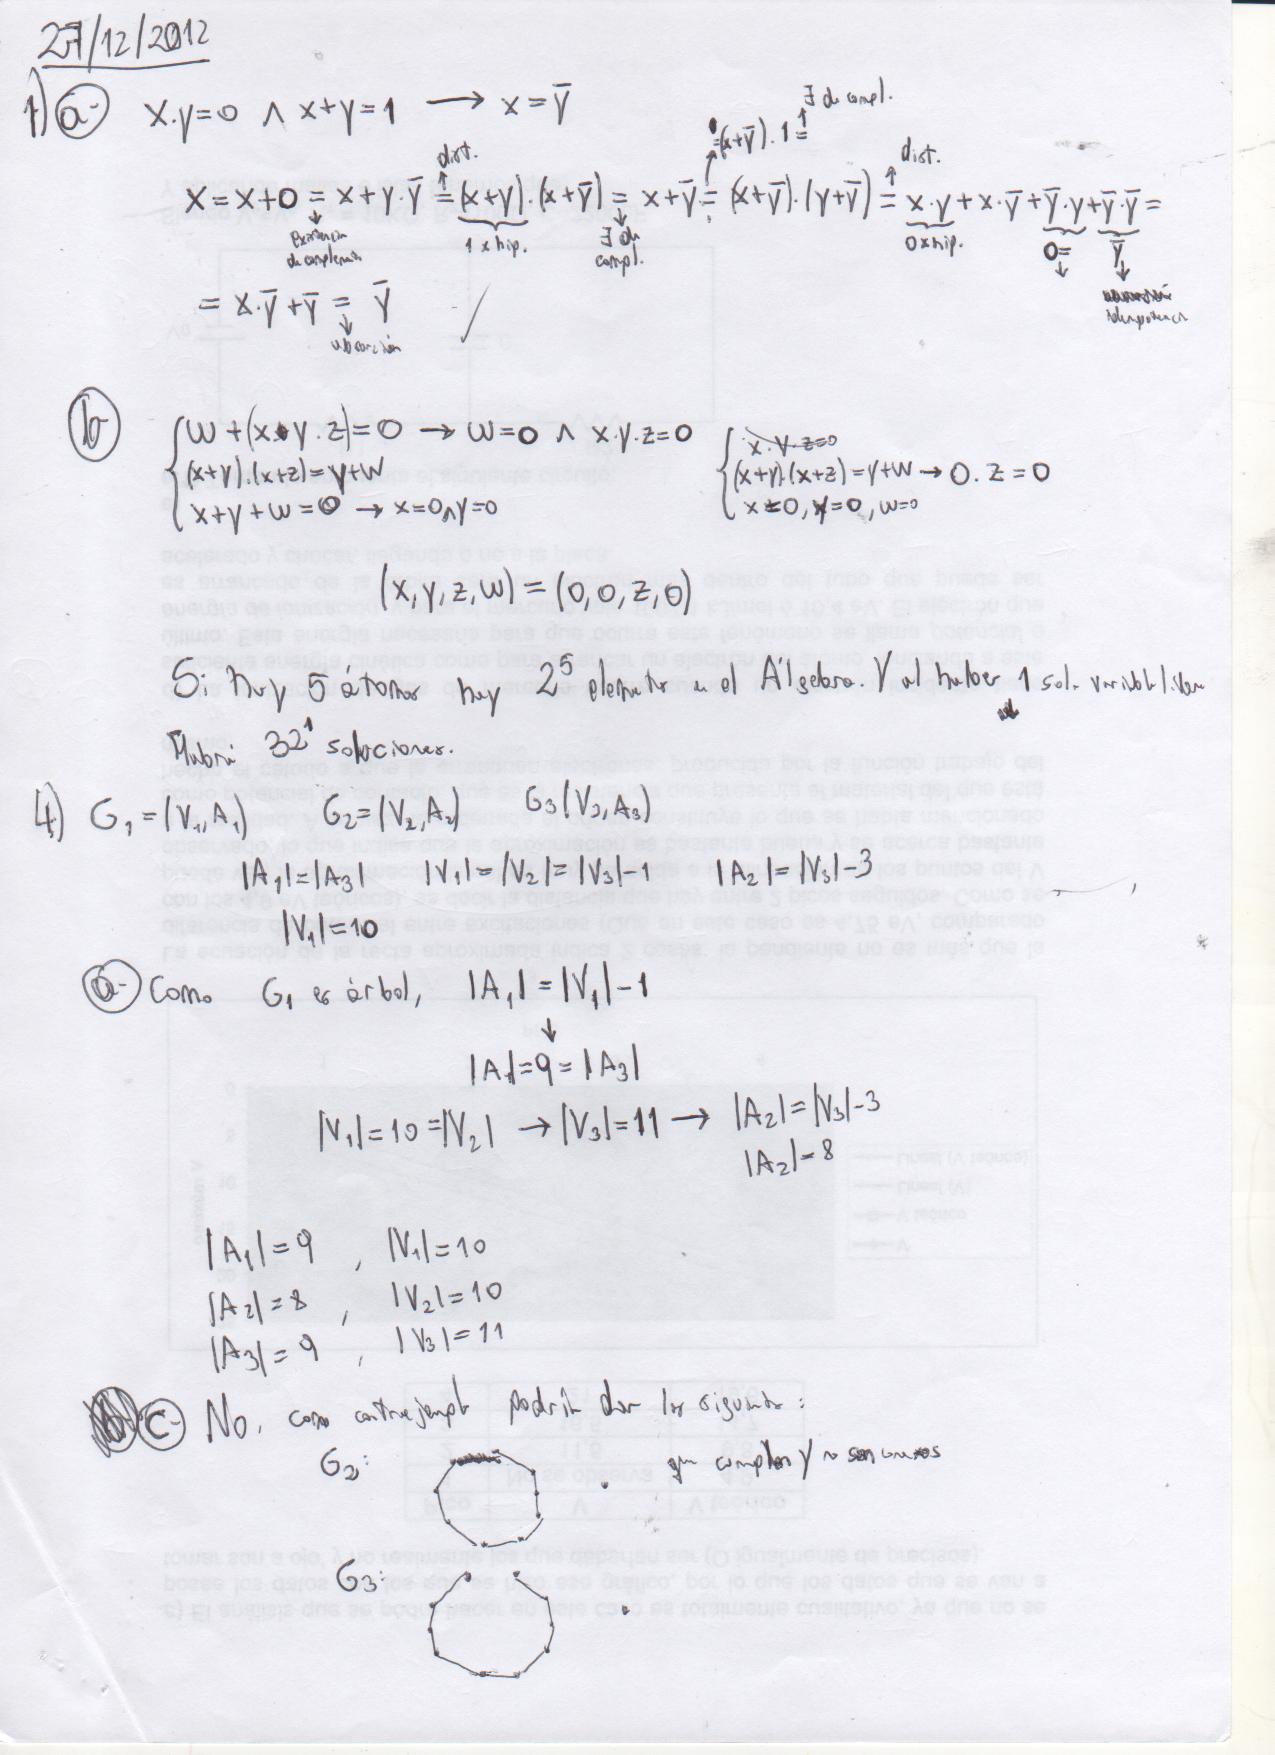 27/12/2012
1) a- x.y=0 ∧ x+y=1 → x=ȳ
∃ de compl.
dist. =(x+ȳ).1= dist.
x=x+0=x+y.ȳ=(x+y).(x+ȳ)=x+ȳ=(x+ȳ).(y+ȳ)=x.y+x.ȳ+ȳ.y+ȳ.ȳ=
Existencia de complemento 1 x hip. ∃ de compl. 0 x hip. 0= ȳ
Idempotencia
= x.ȳ+ȳ = ȳ
absorción
b-
w+(x.y.z)=0 → w=0 ∧ x.y.z=0
x.y.z=0
(x+y).(x+z)=y+w
(x+y).(x+z)=y+w → 0.z=0
x+y+w=0 → x=0∧y=0
x=0, y=0, w=0
(x,y,z,w)=(0,0,z,0)
Si hay 5 átomos hay 2⁵ elementos en el Álgebra. Y al haber 1 sola variable libre
Habrá 32¹ soluciones.
4) G₁=(V₁,A₁) G₂=(V₂,A₂) G₃(V₃,A₃)
|A₁|=|A₃| |V₁|=|V₂|=|V₃|-1 |A₂|=|V₃|-3
|V₁|=10
a- Como G₁ es árbol, |A₁|=|V₁|-1
↓
|A₁|=9=|A₃|
|V₁|=10=|V₂| → |V₃|=11 → |A₂|=|V₃|-3
|A₂|=8
|A₁|=9 , |V₁|=10
|A₂|=8 , |V₂|=10
|A₃|=9 , |V₃|=11
c- No, como contraejemplo podrían dar los siguientes:
G₂: que cumplen y no son conexos
G₃: